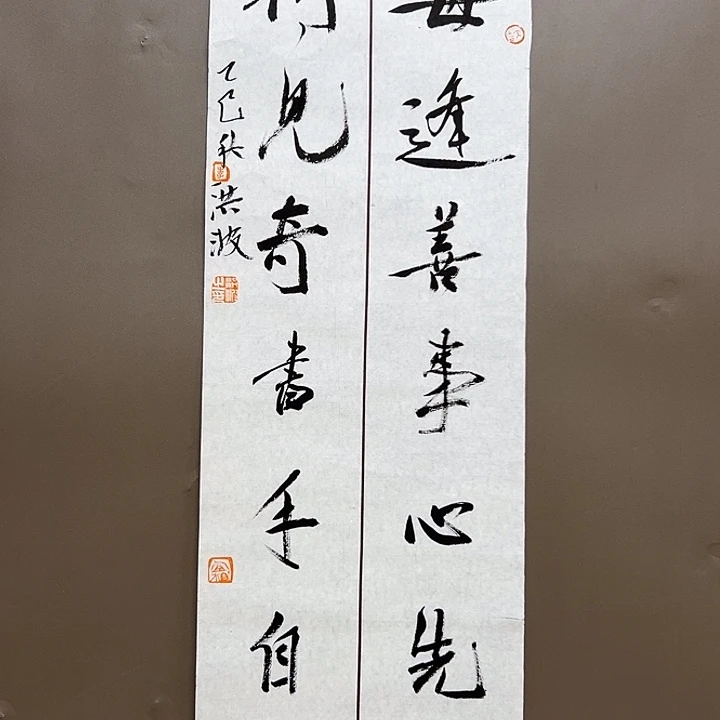 每逢善事心先
得见奇书手自
乙巳秋
洪波